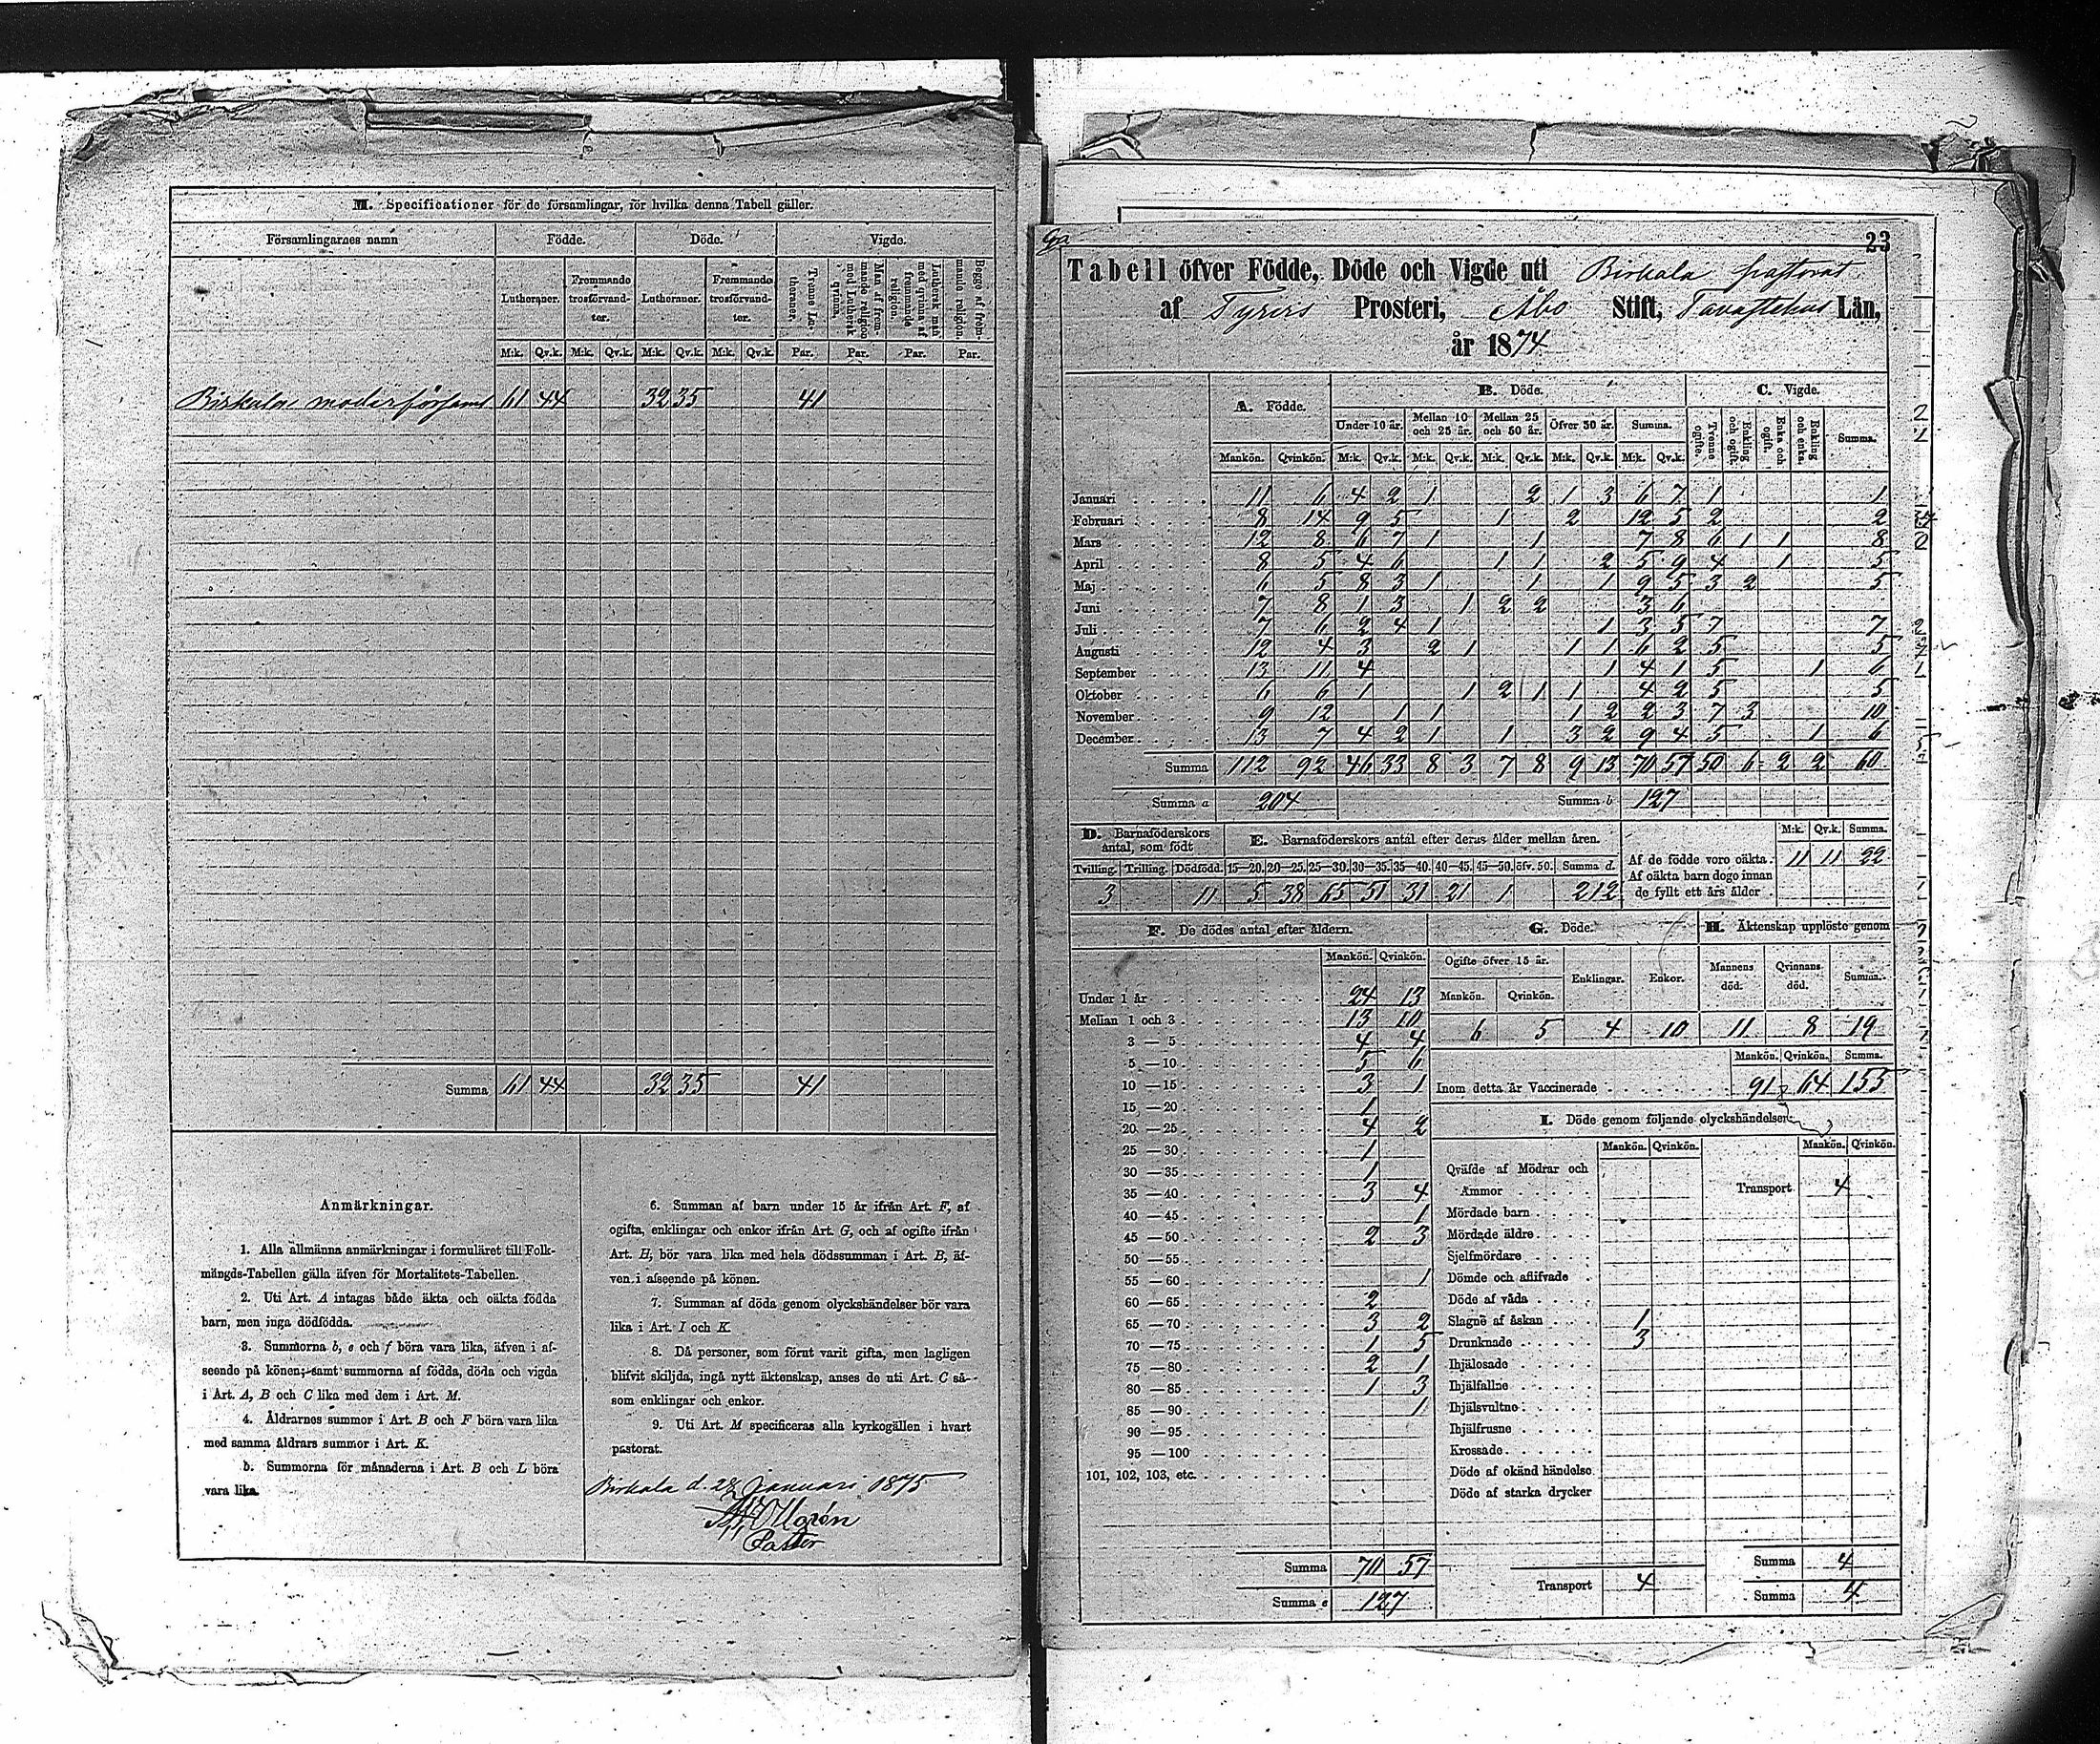 M. Specificationer för de församlingar, för hvilka denna Tabell gäller.
Församlingarnes namn Födde. Döde. Vigde.
Lutheraner. Fremmande trosförvandter. Lutheraner. Fremmande trosförvandter. Trenne Lutheraner. Man af fremmande religion med Luthersk qvinna. Luthersk man med qvinna af fremmande religion. Begge af fremmande religion.
M:k. Qv.k. M:k. Qv.k. M:k. Qv.k. M:k. Qv.k. Par. Par. Par. Par.
Birkala moderförsaml 61 44 32 35 41
Summa 61 44 32 35 41
Anmärkningar.
1. Alla allmänna anmärkningar i formuläret till Folk-
mängds-Tabellen gälla äfven för Mortalitets-Tabellen.
2. Uti Art. A intagas både äkta och oäkta födda
barn, men inga dödfödda.
3. Summorna b, e och f böra vara lika, äfven i af-
seende på könen; samt summorna af födda, döda och vigda
i Art. A, B och C lika med dem i Art. M.
4. Åldrarnes summor i Art. B och F böra vara lika
med samma åldrars summor i Art. K.
5. Summorna för månaderna i Art. B och L böra
vara lika.
6. Summan af barn under 15 år ifrån Art. F, af
ogifta, enklingar och enkor ifrån Art. G, och af ogifte ifrån
Art. H, bör vara lika med hela dödssumman i Art. B, äf-
ven i afseende på könen.
7. Summan af döda genom olyckshändelser bör vara
lika i Art. I och K.
8. Då personer, som förut varit gifta, men lagligen
blifvit skiljda, ingå nytt äktenskap, anses de uti Art. C så-
som enklingar och enkor.
9. Uti Art. M specificeras alla kyrkogällen i hvart
pastorat.
Birkala d. 28 Januari 1875
Pastor
23
Tabell öfver Födde, Döde och Vigde uti Birkala pastorat
af Tyrvis Prosteri, Åbo Stift, Tavastehus Län,
år 1874
A. Födde. B. Döde. C. Vigde.
Under 10 år. Mellan 10 och 25 år. Mellan 25 och 50 år. Öfver 50 år. Summa. Trenne ogifte. Enkling och ogift. Enka och ogift. Enkling och enka. Summa.
Mankön. Qvinkön. M:k. Qv.k. M:k. Qv.k. M:k. Qv.k. M:k. Qv.k. M:k. Qv.k.
Januari 11 6 4 2 1 2 1 3 6 7 1 1
Februari 8 14 9 5 1 2 12 5 2 2
Mars 12 8 6 7 1 1 7 8 6 1 1 8
April 8 5 4 6 1 1 2 5 9 4 1 5
Maj 6 5 8 3 1 1 1 9 5 3 2 5
Juni 7 8 1 3 1 2 2 3 6
Juli 7 6 2 4 1 1 3 5 7 7
Augusti 12 4 3 2 1 1 1 6 2 5 5
September 13 11 4 1 4 1 5 1 6
Oktober 6 6 1 1 2 1 1 4 2 5 5
November 9 12 1 1 1 2 2 3 7 3 10
December 13 7 4 2 1 1 3 2 9 4 5 1 6
Summa 112 92 46 33 8 3 7 8 9 13 70 57 50 6 2 2 60
Summa a 204 Summa b 127
D. Barnaföderskors antal, som födt
E. Barnaföderskors antal efter deras ålder mellan åren.
M:k. Qv.k. Summa.
Tvilling. Trilling. Dödfödd. 15—20. 20—25. 25—30. 30—35. 35—40. 40—45. 45—50. öfv. 50. Summa d.
3 11 5 38 65 51 31 21 1 212
Af de födde voro oäkta. 11 11 22
Af oäkta barn dogo innan
de fyllt ett års ålder
F. De dödes antal efter åldern.
Mankön. Qvinkön.
Under 1 år 24 13
Mellan 1 och 3 13 10
3 — 5 4 4
5 — 10 5 6
10 — 15 3 1
15 — 20 1
20 — 25 4 2
25 — 30 1
30 — 35 1
35 — 40 3 4
40 — 45 1
45 — 50 2 3
50 — 55
55 — 60 1
60 — 65 2
65 — 70 3 2
70 — 75 1 5
75 — 80 2 1
80 — 85 1 3
85 — 90 1
90 — 95
95 — 100
101, 102, 103, etc.
Summa 70 57
Summa e 127
G. Döde. H. Äktenskap upplöste genom
Ogifte öfver 15 år. Enklingar. Enkor. Mannens död. Qvinnans död. Summa.
Mankön. Qvinkön.
6 5 4 10 11 8 19
Mankön. Qvinkön. Summa.
Inom detta år Vaccinerade 91 64 155
I. Döde genom följande olyckshändelser
Mankön. Qvinkön. Mankön. Qvinkön.
Qväfde af Mödrar och
Ammor Transport 4
Mördade barn
Mördade äldre
Sjelfmördare
Dömde och aflifvade
Döde af våda
Slagne af åskan 1
Drunknade 3
Ihjälosade
Ihjälfallne
Ihjälsvultne
Ihjälfrusne
Krossade
Döde af okänd händelse
Döde af starka drycker
Transport 4
Summa 4
Summa 4